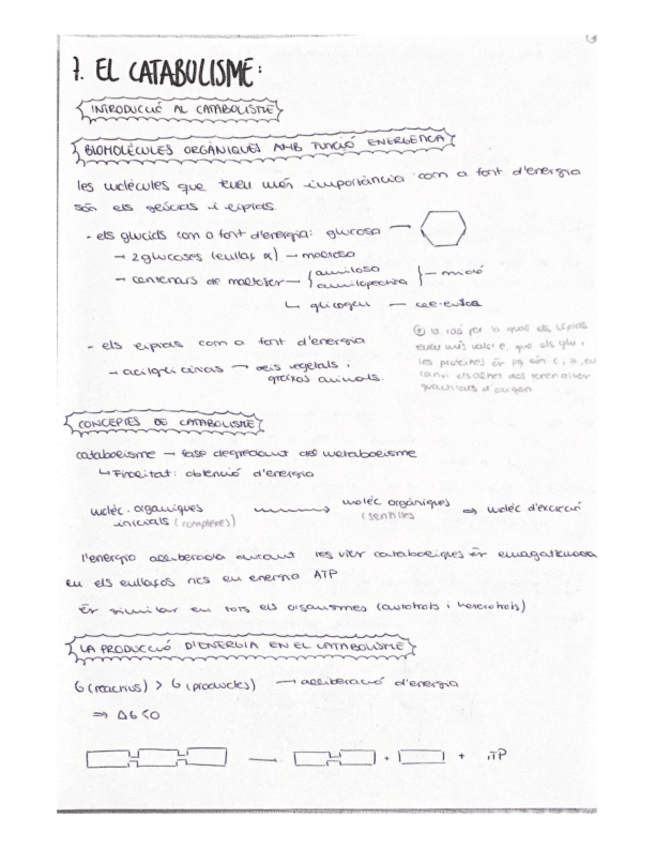 7. EL CATABOLISME:
INTRODUCCIÓ AL CATABOLISME
BIOMOLÈCULES ORGÀNIQUES AMB FUNCIÓ ENERGÈTICA
les molècules que tenen més importància com a font d'energia
són els glúcids i lípids.
- els glúcids com a font d'energia: glucosa →
→ 2 glucoses (enllaç α) → maltosa
→ centenars de maltoses → amilosa
amilopectina → midó
↳ glicogen →
- els lípids com a font d'energia
→ acilglicèrids → olis vegetals i
greixos animals.
la raó per la qual els lípids
tenen més valor e, que els glu i
les proteïnes és pq són C i H, en
canvi els altres
d'oxigen
CONCEPTES DE CATABOLISME
catabolisme → fase degradant del metabolisme
↳ Finalitat: obtenció d'energia
molèc. orgàniques molèc orgàniques ⇒ molèc d'excreció
inicials (complexes) (senzilles
l'energia alliberada durant les vies catabòliques és emmagatzemada
en els enllaços rics en energia ATP
És similar en tots els organismes (autòtrofs i heteròtrofs)
LA PRODUCCIÓ D'ENERGIA EN EL CATABOLISME
G (reactius) > G (productes) → alliberació d'energia
⇒ ΔG < 0
→ + + ATP